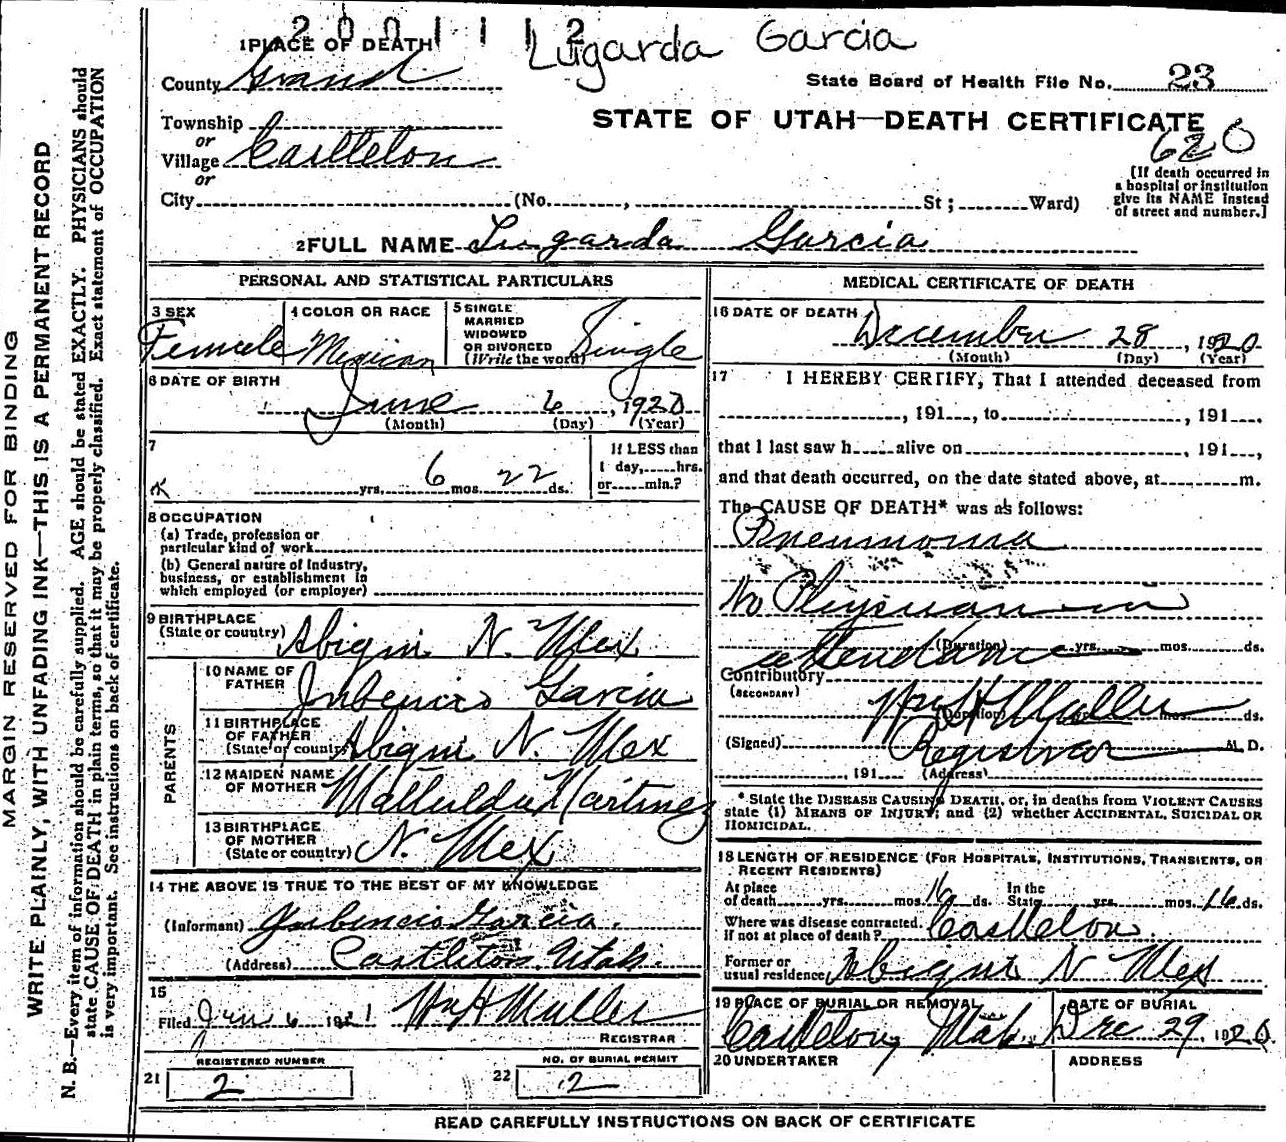 2001112
Lugarda Garcia
1 PLACE OF DEATH
County Grand
State Board of Health File No. 23
STATE OF UTAH—DEATH CERTIFICATE
620
Township
or
Village Castleton
or
City (No. , St ; Ward)
[If death occurred in
a hospital or institution
give its NAME instead
of street and number.]
2 FULL NAME Lugarda Garcia
PERSONAL AND STATISTICAL PARTICULARS
3 SEX
Female
4 COLOR OR RACE
Mexican
5 SINGLE
MARRIED
WIDOWED
OR DIVORCED
(Write the word)
Single
6 DATE OF BIRTH
June 6, 1920
(Month) (Day) (Year)
7
yrs. 6 mos. 22 ds.
If LESS than
1 day, hrs.
or min.?
8 OCCUPATION
(a) Trade, profession or
particular kind of work
(b) General nature of Industry,
business, or establishment in
which employed (or employer)
9 BIRTHPLACE
(State or country) Abiqui N. Mex
PARENTS
10 NAME OF
FATHER Jubencio Garcia
11 BIRTHPLACE
OF FATHER
(State or country) Abiqui N. Mex
12 MAIDEN NAME
OF MOTHER Martinez
13 BIRTHPLACE
OF MOTHER
(State or country) N. Mex
14 THE ABOVE IS TRUE TO THE BEST OF MY KNOWLEDGE
(Informant) Jubencio Garcia.
(Address) Castleton Utah.
15
Filed Jan 6 1921 Wm H Muller
REGISTRAR
REGISTERED NUMBER
21 2
NO. OF BURIAL PERMIT
22 2
MEDICAL CERTIFICATE OF DEATH
16 DATE OF DEATH
December 28, 1920
(Month) (Day) (Year)
17 I HEREBY CERTIFY, That I attended deceased from
, 191 , to , 191 ,
that I last saw h alive on , 191 ,
and that death occurred, on the date stated above, at m.
The CAUSE OF DEATH* was as follows:
Pneumonia
No Physician in
attendance
(Duration) yrs. mos. ds.
Contributory
(SECONDARY)
Wm H Muller
(Duration) mos. ds.
(Signed) Registrar M. D.
, 191 (Address)
* State the DISEASE CAUSING DEATH, or, in deaths from VIOLENT CAUSES
state (1) MEANS OF INJURY; and (2) whether ACCIDENTAL, SUICIDAL OR
HOMICIDAL.
18 LENGTH OF RESIDENCE (FOR HOSPITALS, INSTITUTIONS, TRANSIENTS, OR
RECENT RESIDENTS)
At place
of death yrs. mos. 16 ds.
In the
State yrs. mos. 16 ds.
Where was disease contracted,
If not at place of death? Castleton.
Former or
usual residence Abiqui N Mex
19 PLACE OF BURIAL OR REMOVAL
Castleton, Utah.
DATE OF BURIAL
Dec 29, 1920.
20 UNDERTAKER
ADDRESS
READ CAREFULLY INSTRUCTIONS ON BACK OF CERTIFICATE
MARGIN RESERVED FOR BINDING
WRITE PLAINLY, WITH UNFADING INK—THIS IS A PERMANENT RECORD
N. B.—Every item of information should be carefully supplied. AGE should be stated EXACTLY. PHYSICIANS should
state CAUSE OF DEATH in plain terms, so that it may be properly classified. Exact statement of OCCUPATION
is very important. See instructions on back of certificate.